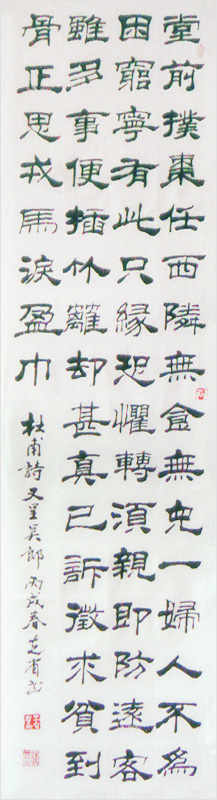 堂前撲棗任西隣無食無兒一婦人不為
困窮寧有此只緣恐懼轉須親即防遠客
雖多事便插竹籬却甚真已訴徵求貧到
骨正思戎馬淚盈巾
杜甫詩又呈吳郎丙戌春